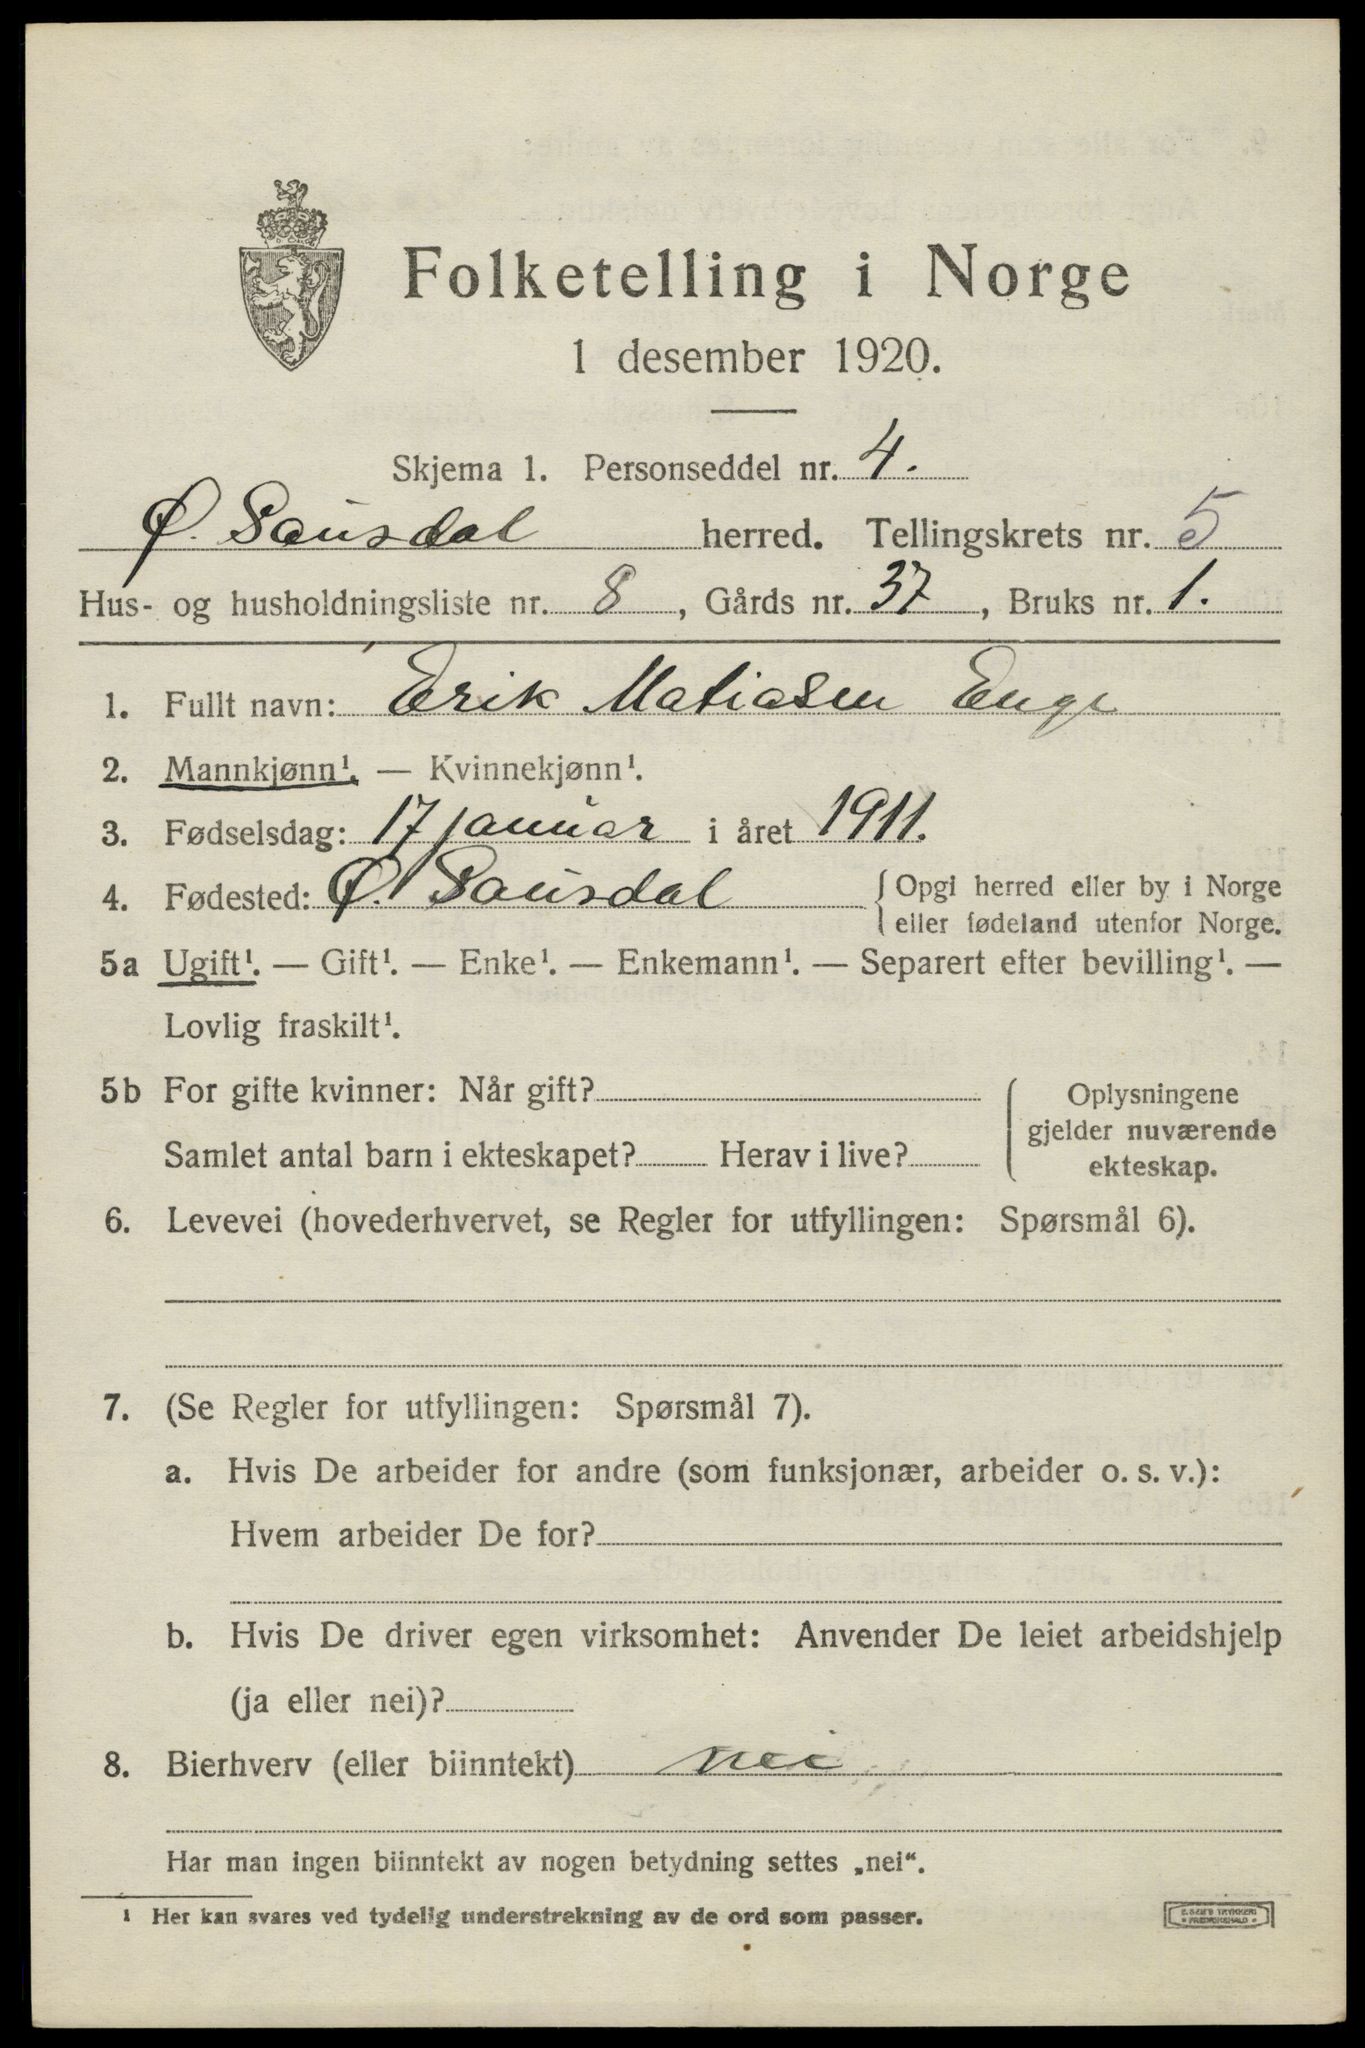 Folketelling i Norge
1 desember 1920.
Skjema 1. Personseddel nr. 4.
Ø. Gausdal herred. Tellingskrets nr. 5
Hus- og husholdningsliste nr. 8, Gårds nr. 37, Bruks nr. 1.
1. Fullt navn: Erik Matiasen Enge
2. Mannkjønn¹. — Kvinnekjønn¹.
3. Fødselsdag: 17 januar i året 1911.
4. Fødested: Ø. Gausdal {Opgi herred eller by i Norge
eller fødeland utenfor Norge.
5a Ugift¹. — Gift¹. — Enke¹. — Enkemann¹. — Separert efter bevilling¹. —
Lovlig fraskilt¹.
5b For gifte kvinner: Når gift?
Samlet antal barn i ekteskapet? Herav i live?
Oplysningene
gjelder nuværende
ekteskap.
6. Levevei (hovederhvervet, se Regler for utfyllingen: Spørsmål 6).
7. (Se Regler for utfyllingen: Spørsmål 7).
a. Hvis De arbeider for andre (som funksjonær, arbeider o. s. v.):
Hvem arbeider De for?
b. Hvis De driver egen virksomhet: Anvender De leiet arbeidshjelp
(ja eller nei)?
8. Bierhverv (eller biinntekt) nei
Har man ingen biinntekt av nogen betydning settes „nei“.
¹ Her kan svares ved tydelig understrekning av de ord som passer.
E. SEM'S TRYKKERI
FREDRIKSHALD